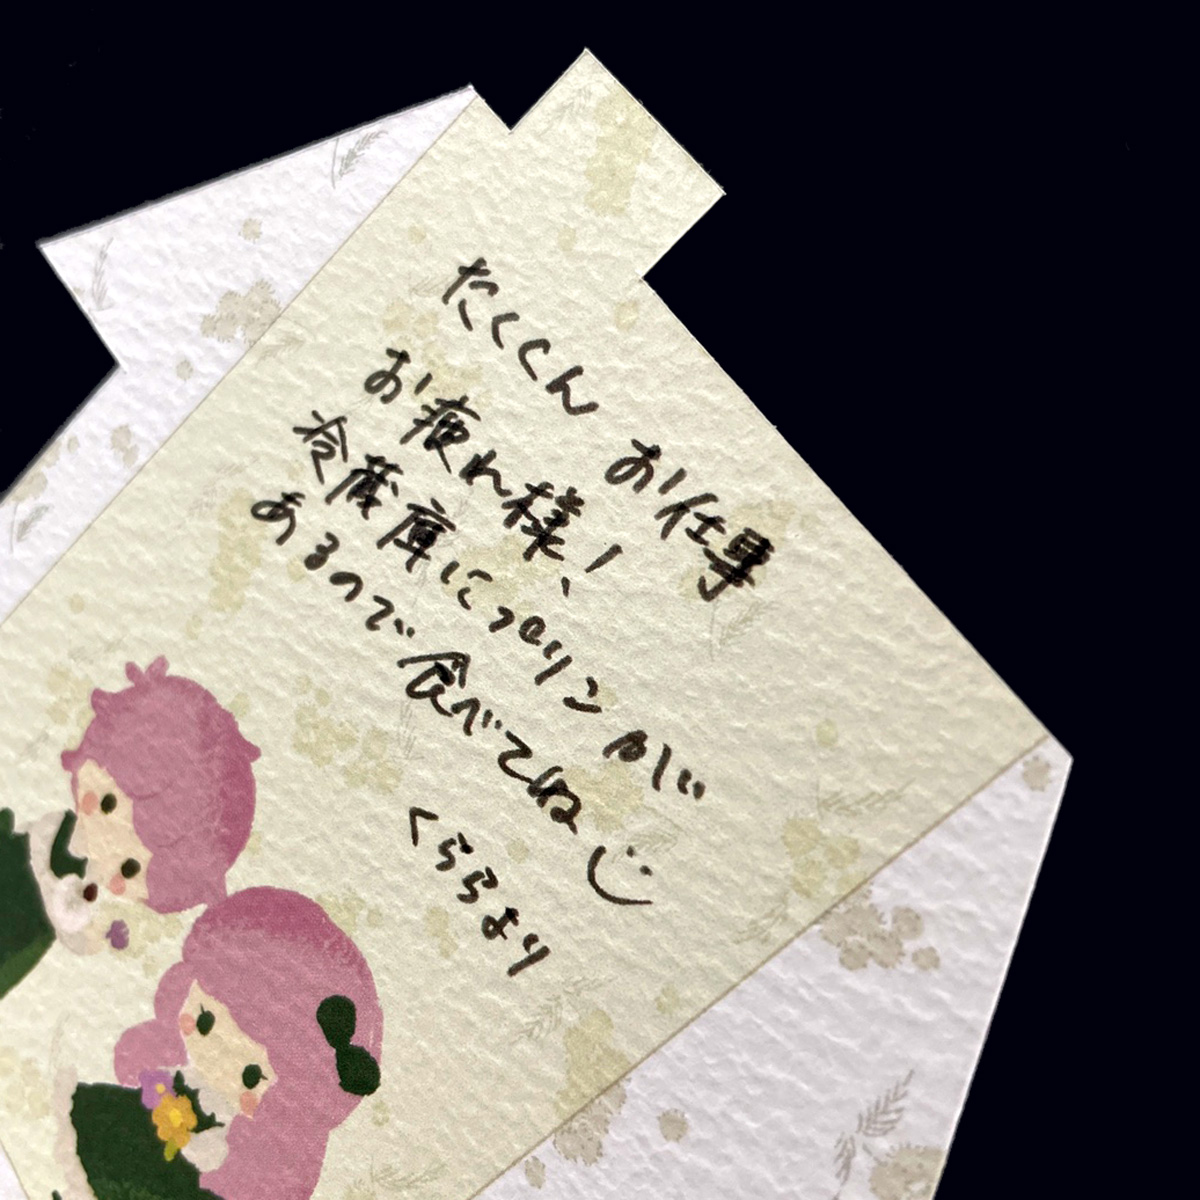 たくくん お仕事
お疲れ様!
冷蔵庫にプリンが
あるので食べてね
くららより